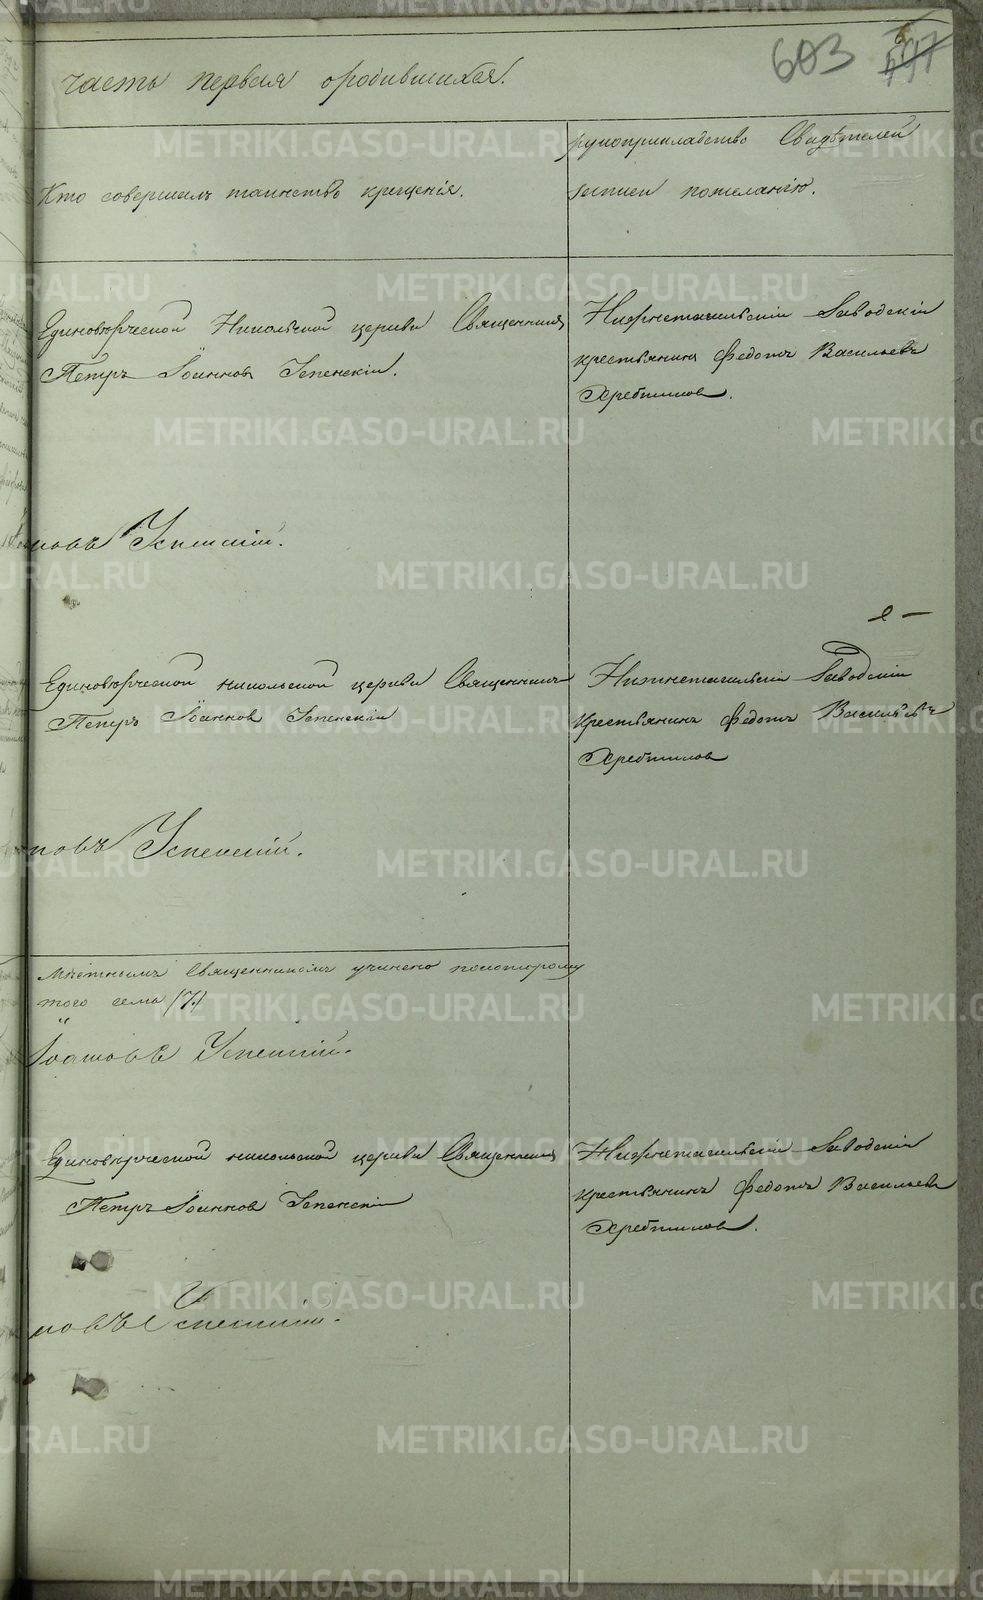 603
часть первая о родившихся.
Кто совершалъ таинство крещенія.
рукоприкладство Свидѣтелей
записи по желанію.
Единовѣрческой Никольской церкви Священникъ
Петръ Іоанновъ Успенскій.
Нижнетагильскій Заводскій
крестьянинъ Федотъ Васильевъ
Хребтиковъ.
новъ Успенскій.
Единовѣрческой никольской церкви Священникъ
Петръ Іоанновъ Успенскій
Нижнетагильскій Заводскій
крестьянинъ Федотъ Васильевъ
Хребтиковъ
новъ Успенскій.
Мѣстнымъ Священникомъ учинено по которому
того села (7.)
Іоанновъ Успенскій.
Единовѣрческой никольской церкви Священникъ
Петръ Іоанновъ Успенскій
Нижнетагильскій Заводскій
крестьянинъ Федотъ Васильевъ
Хребтиковъ.
новъ Успенскій.
METRIKI.GASO-URAL.RU